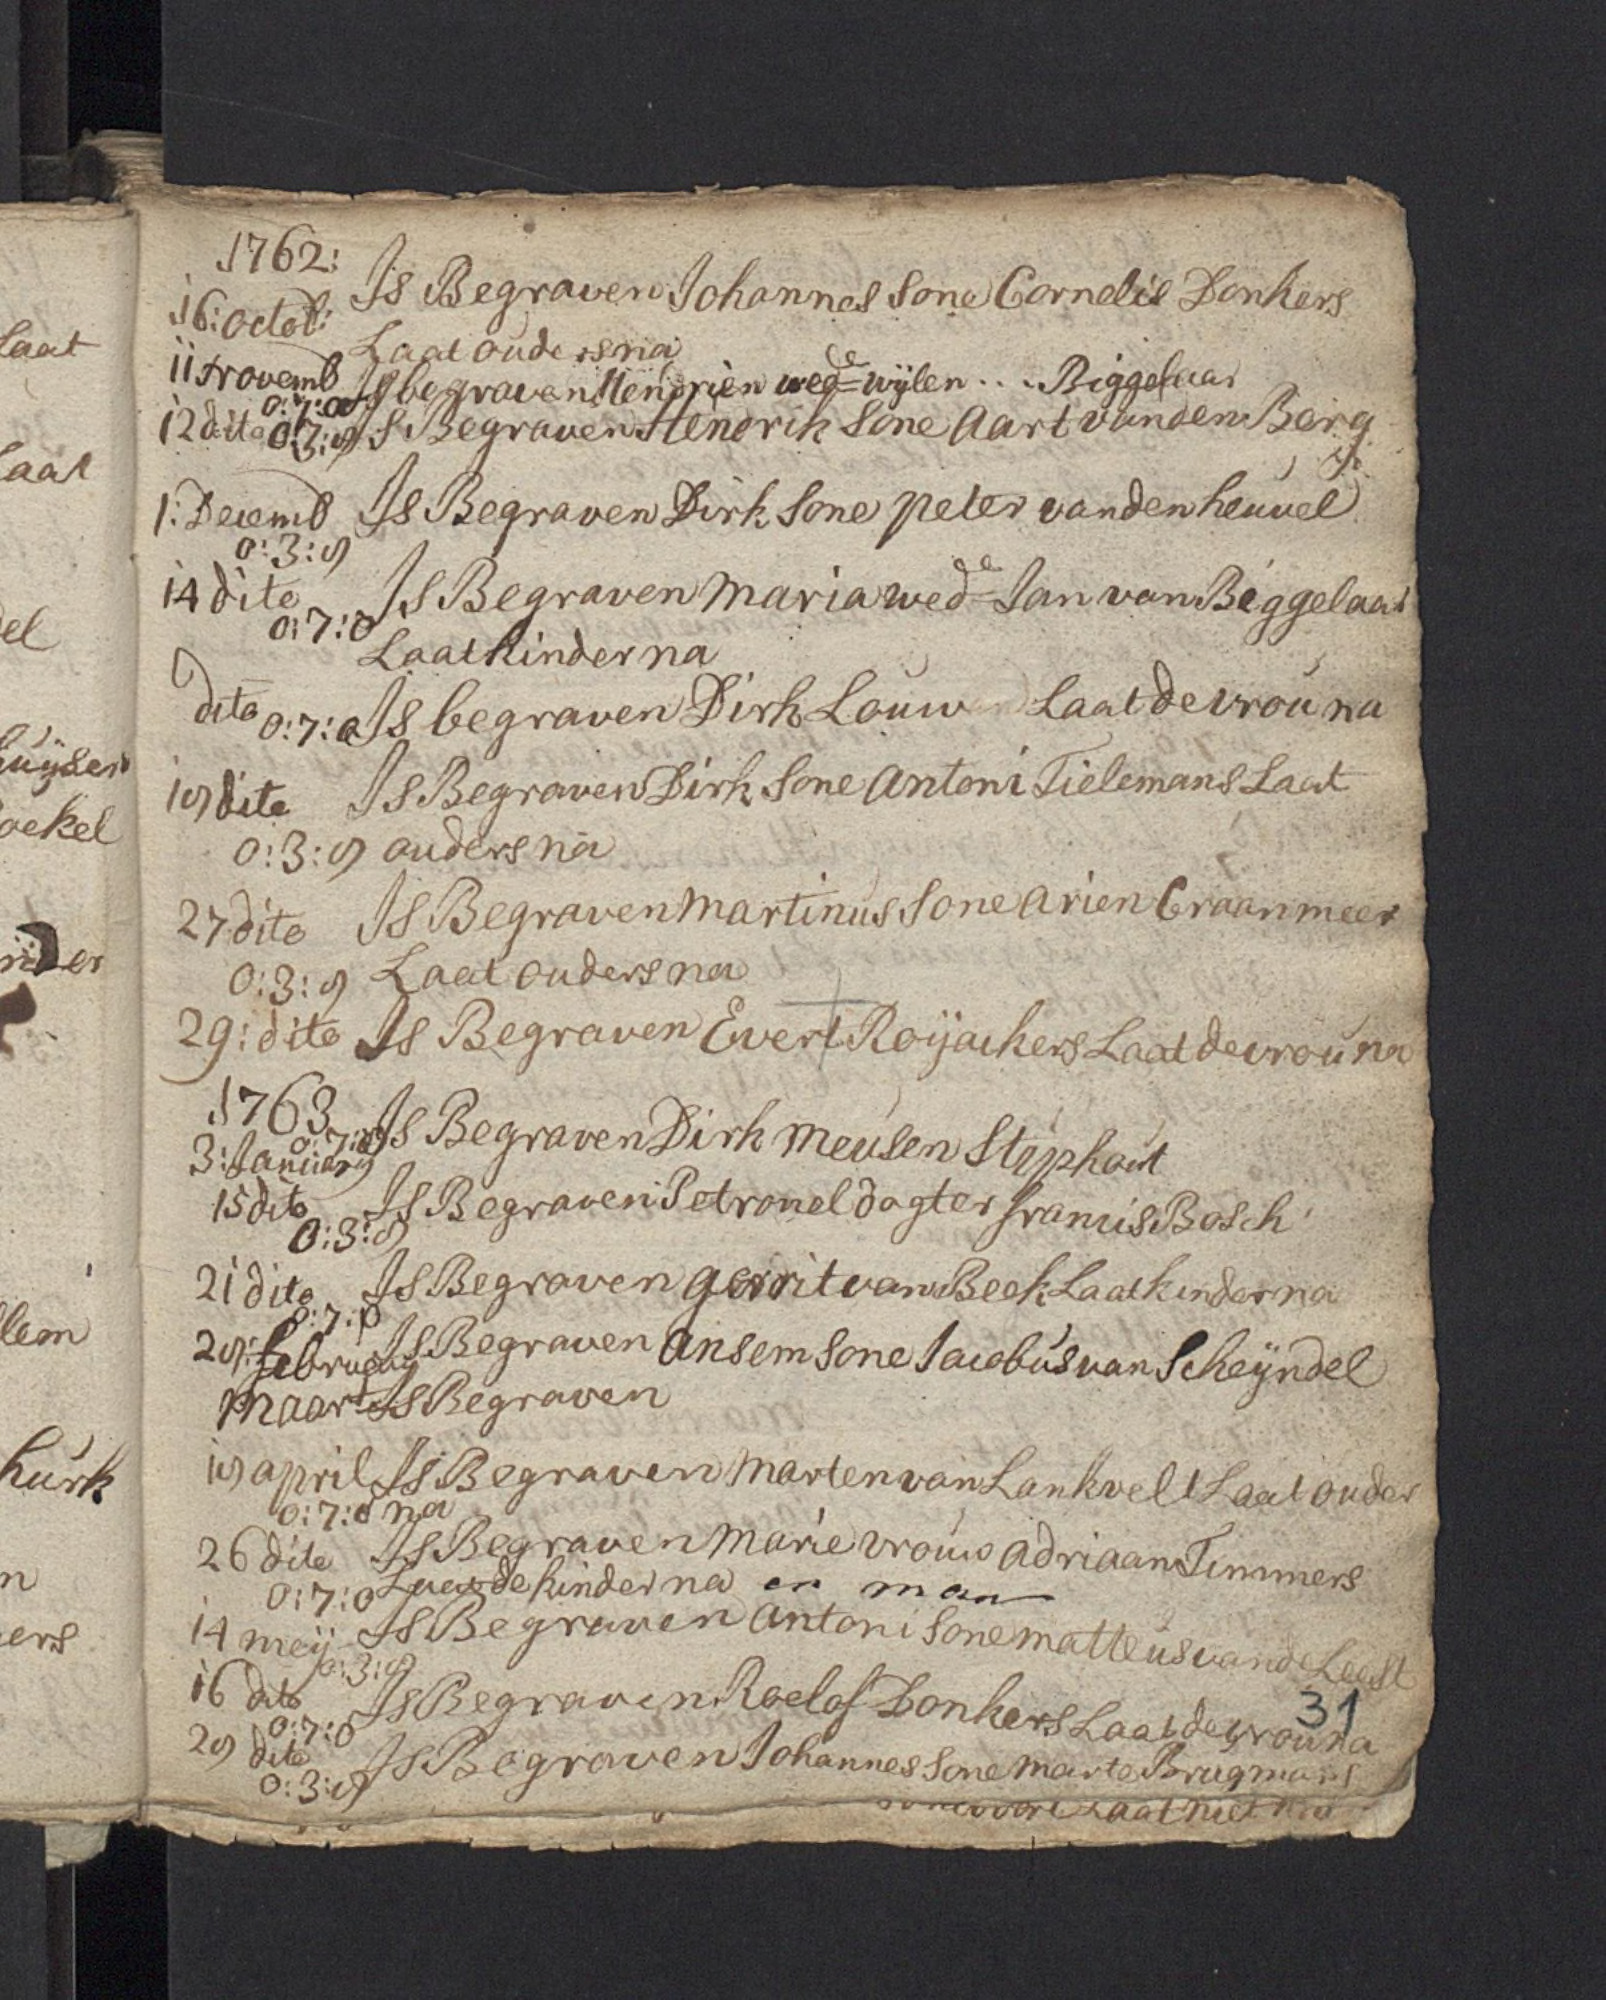 1762:
16: octob: Is Begraven Johannes Sone Cornelis Donkers
Laat ouders na
11 Novemb Is begraven Hendrien wed=e wijlen . . . Biggelaar
0:7:0
12 dito 0:3:9 Is Begraven Hendrik Sone Aart vanden Berg
1: Decemb Is Begraven Dirk Sone peter vanden heuvel
0:3:9
14 dito Is Begraven Maria wed=e Jan van Biggelaar
0:7:0
Laat kinder na
dito 0:7:0 Is begraven Dirk Louw Laat de vrou na
19 dito Is Begraven Dirk Sone Antoni Tielemans Laat
0:3:9 ouders na
27 dito Is Begraven Martinus Sone Arien Craanmeer
0:3:9 Laat ouders na
29: dito Is Begraven Evert Roijackers Laat de vrou na
1763
3: January 0:7:0 Is Begraven Dirk Meusen Stiphout
15 dito Is Begraven Petronel dogter francis Bosch
0:3:9
21 dito Is Begraven gerrit van Beek Laat kinder na
0:7:0
29: february Is Begraven Ansem Sone Jacobus van Scheijndel
Maart Is Begraven
19 april Is Begraven Marten van Lankvelt Laat ouder
0:7:0 na
26 dito Is Begraven Marie vrouw Adriaan Timmers
0:7:0 Laat de kinder na en man
14 meij Is Begraven Antoni Sone Matteus vande Leest
0:3:9
16 dito Is Begraven Roelof Donkers Laat de vrou na
0:7:0
31
29 dito Is Begraven Johannes Sone Marte Brugmans
0:3:9
Laat niet na
Laat
Laat
del
oekel
llem
hurk
n
ers